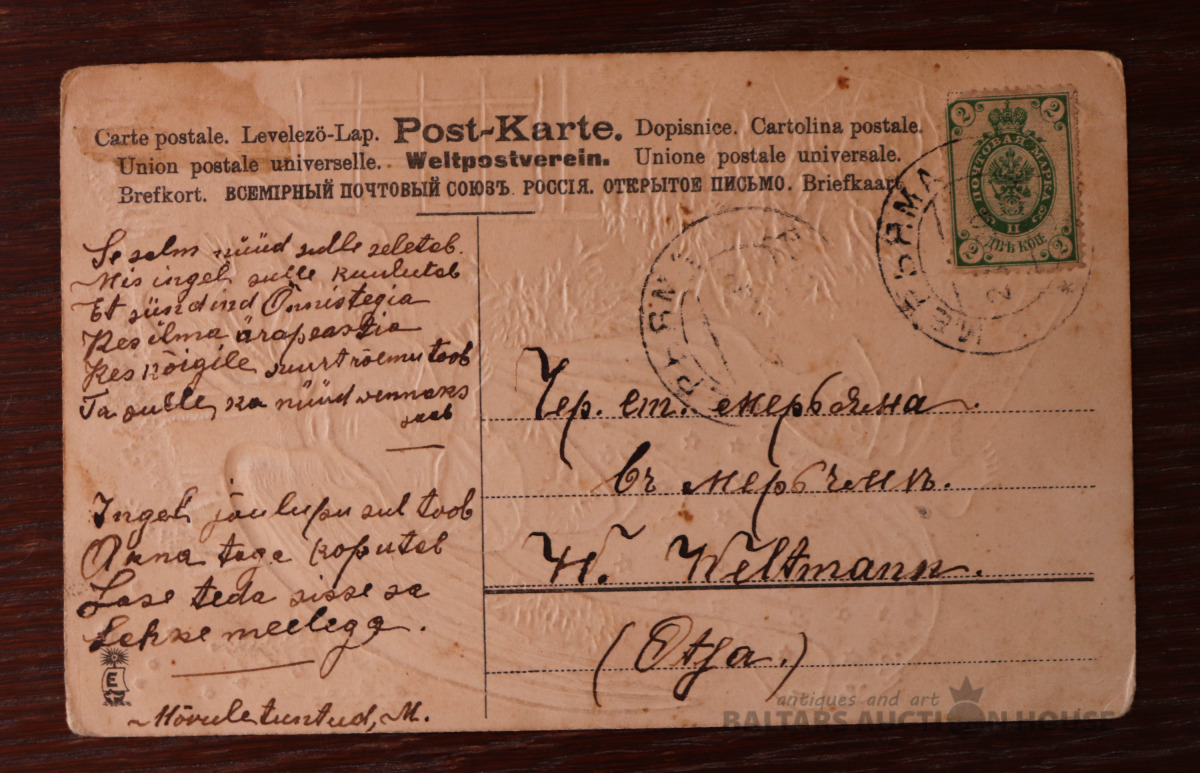 Carte postale. Levelezö-Lap. Post-Karte. Dopisnice. Cartolina postale.
Union postale universelle. Weltpostverein. Unione postale universale.
Brefkort. ВСЕМІРНЫЙ ПОЧТОВЫЙ СОЮЗЪ. РОССІЯ. ОТКРЫТОЕ ПИСЬМО. Briefkaart
2 2
ПОЧТОВАЯ МАРКА
II
ДВѢ КОП.
2 2
PERN
Se salm nüüd sulle seletab.
Mis ingel sulle kuulutab
Et sündind Õnnistegia
Kes ilma ärapeastia
Kes kõigile suurt rõemu toob
Ta sulle ka nüüd vennaks
saab
Ingel jõulupu sul toob
Akna taga koputab
Lase teda sisse sa
Lahke meelega.
Mõrule tuntud, M.
Чер. ст. Мерьяма.
въ
W. Weltmann.
E
antiques and art
BALTARS AUCTION HOUSE